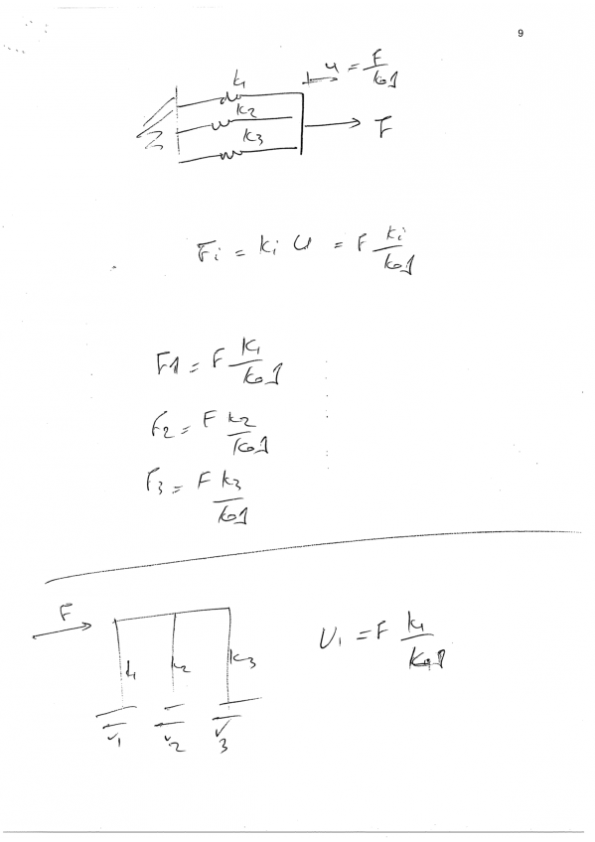 9
k₁
u = F/keş
k2
k3
F
Fi = ki u = F ki/keş
F1 = F k₁/keş
F2 = F k2/keş
F3 = F k3/keş
F
k₁ k2 k3
V1 V2 V3
V₁ = F k₁/keş